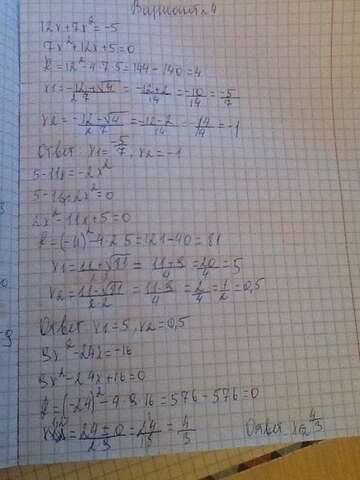 Вариант 4
12x+7x²=-5
7x²+12x+5=0
D=12²-4·7·5=144-140=4
x1=-12+√4/2·7=-12+2/14=-10/14=-5/7
x2=-12-√4/2·7=-12-2/14=-14/14=-1
Ответ: x1=-5/7, x2=-1
5-11x=-2x²
5-11x+2x²=0
2x²-11x+5=0
D=(-11)²-4·2·5=121-40=81
x1=11+√81/2·2=11+9/4=20/4=5
x2=11-√81/2·2=11-9/4=2/4=1/2=0,5
Ответ x1=5, x2=0,5
9x²-24x=-16
9x²-24x+16=0
D=(-24)²-4·9·16=576-576=0
=24±0/2·9=24/18=4/3 Ответ: x=4/3